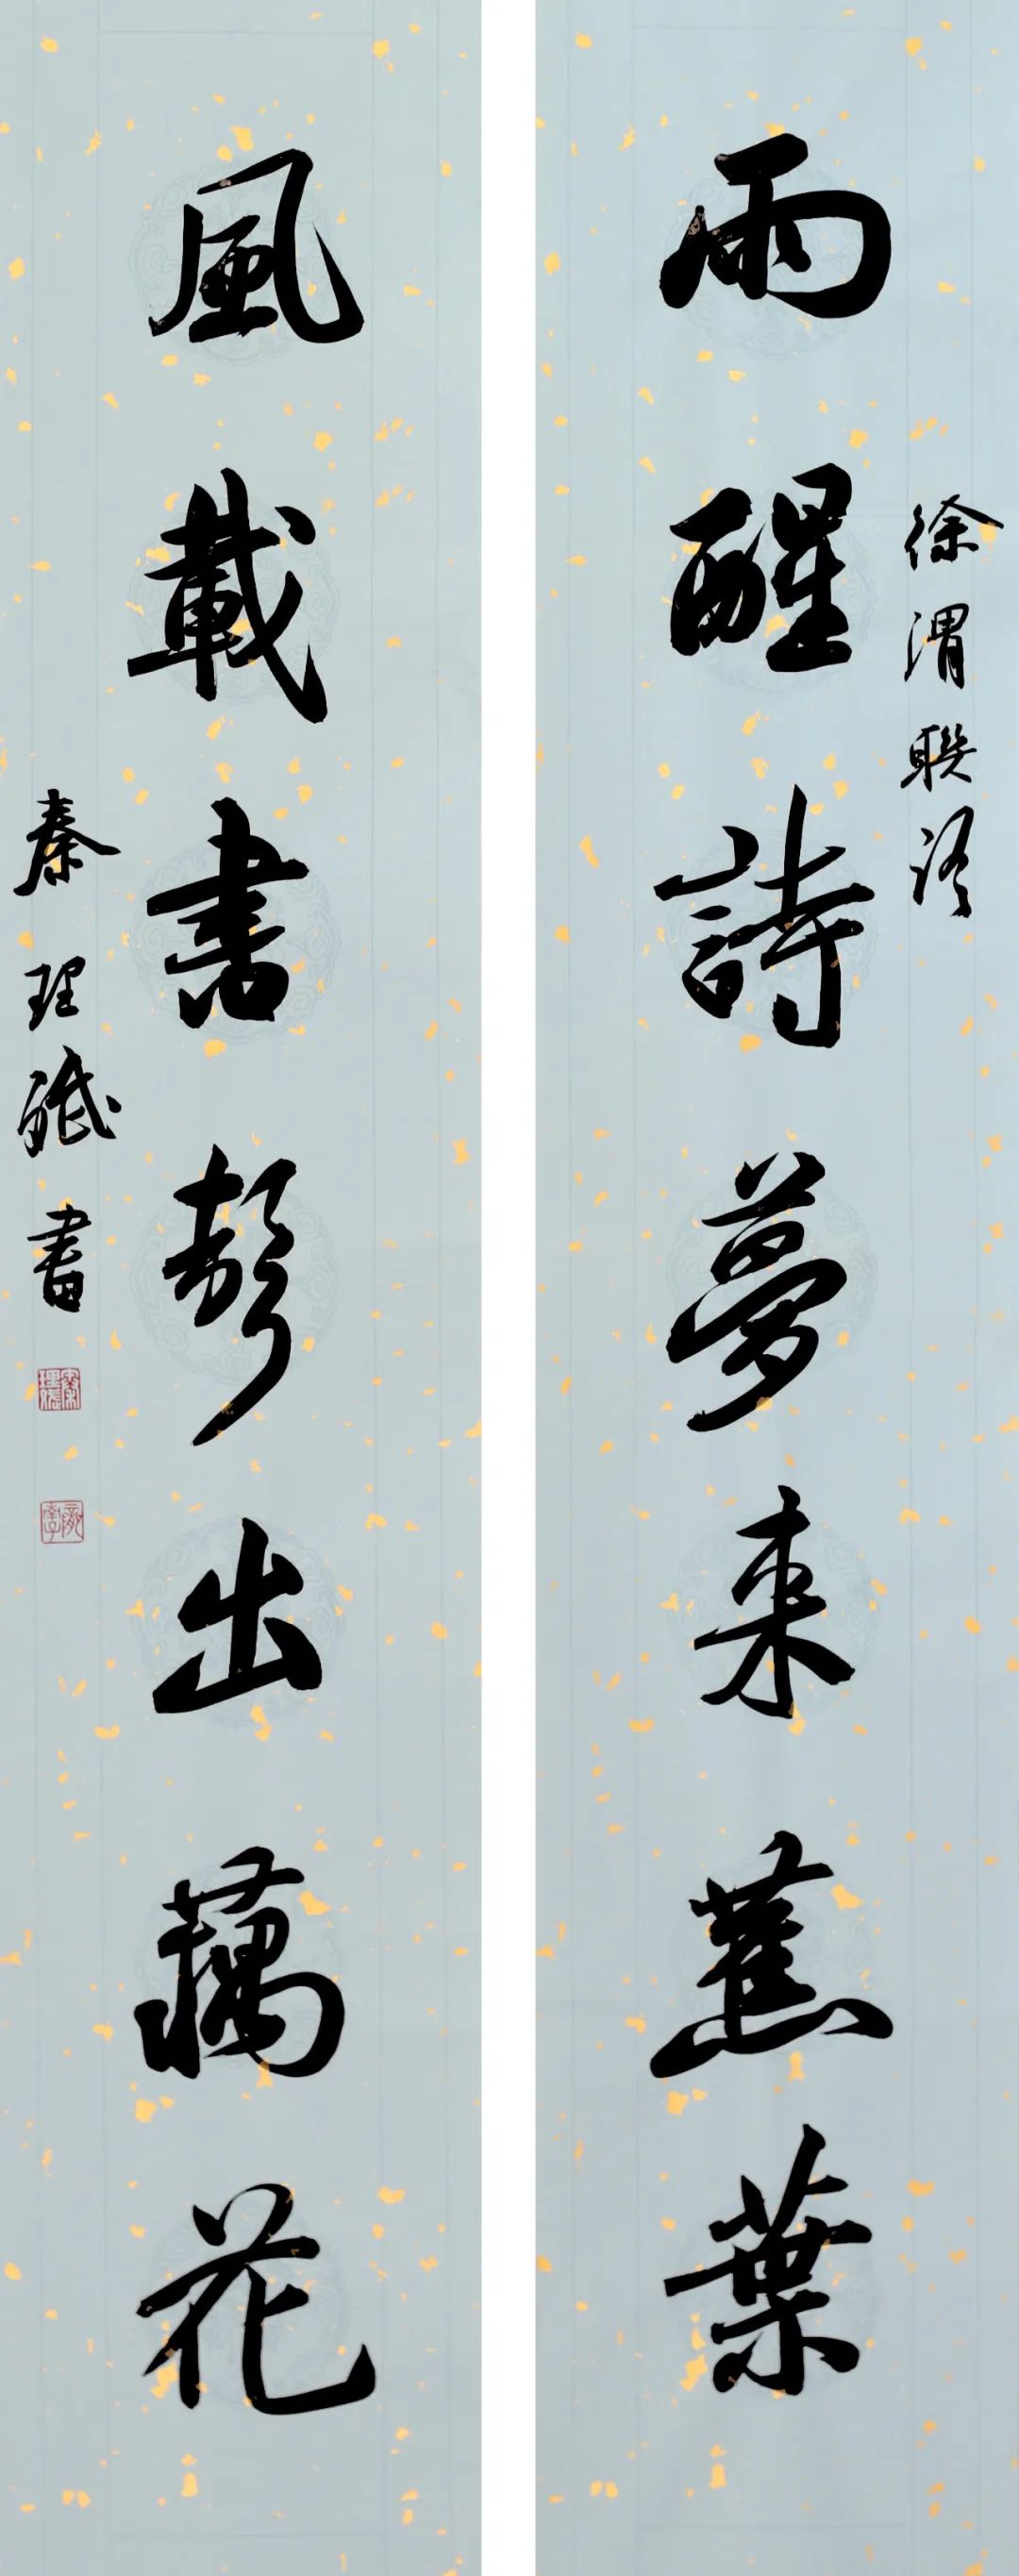 徐渭聯語
雨醒詩夢来蕉葉
風載書聲出藕花
秦理 書